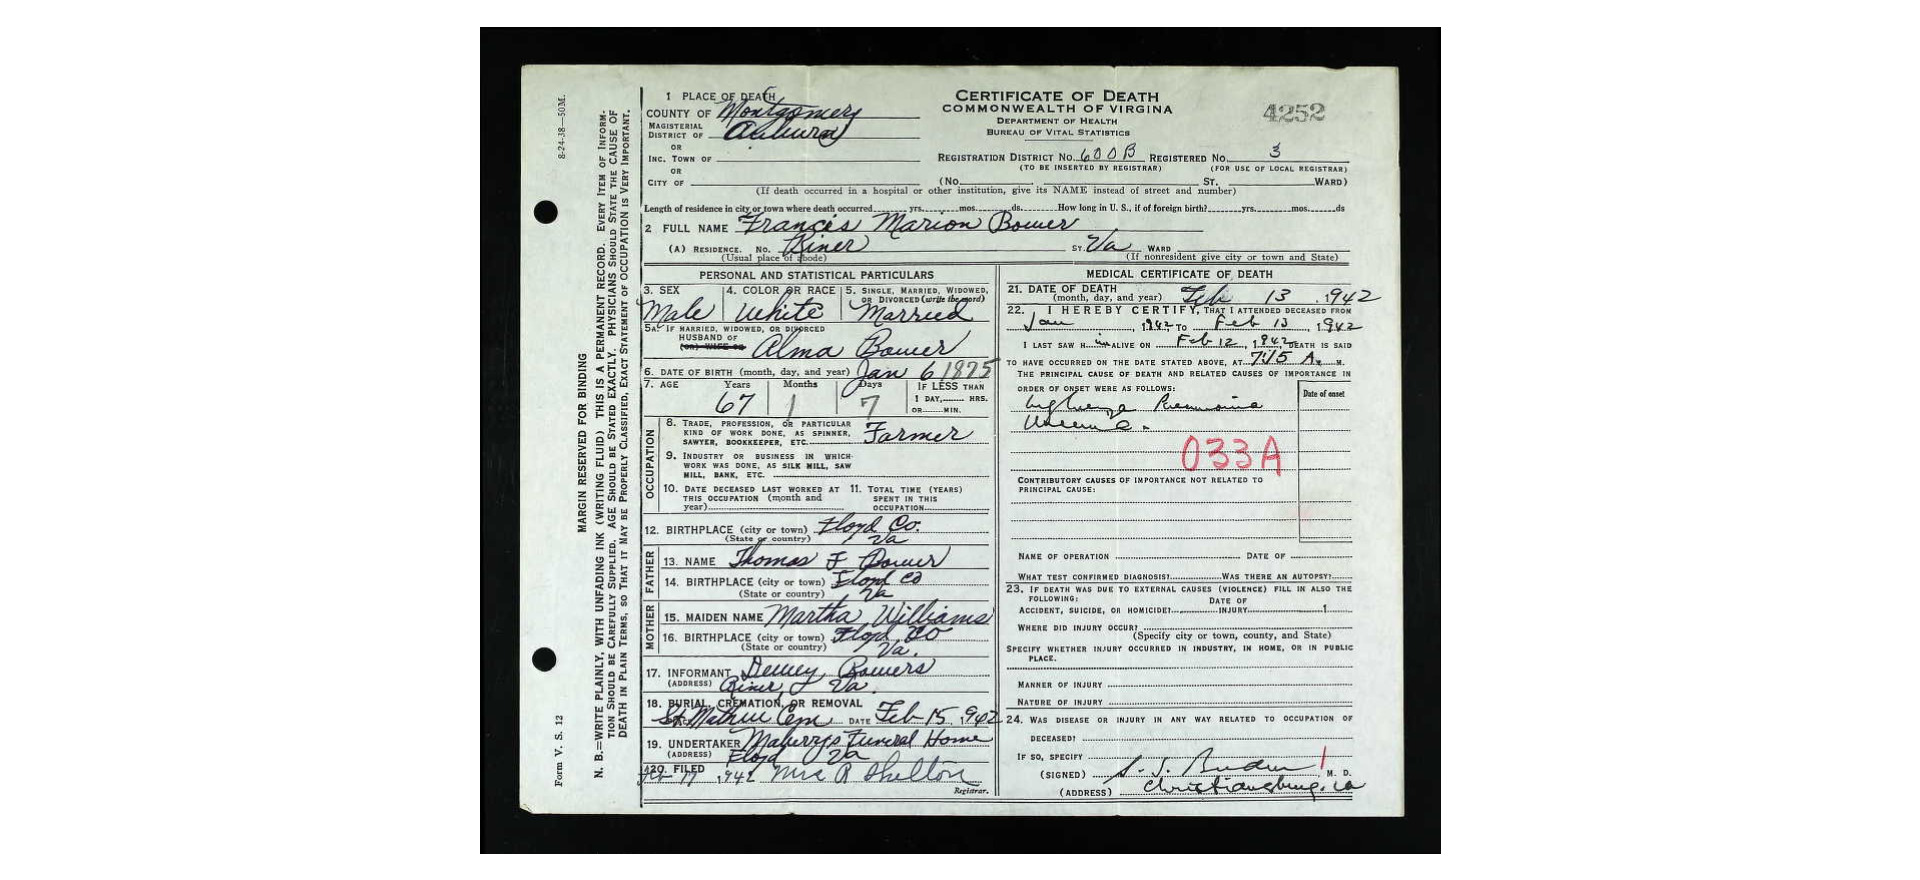 8-24-38—50M.
MARGIN RESERVED FOR BINDING
N. B.=WRITE PLAINLY, WITH UNFADING INK (WRITING FLUID) THIS IS A PERMANENT RECORD. EVERY ITEM OF INFORM-
TION SHOULD BE CAREFULLY SUPPLIED. AGE SHOULD BE STATED EXACTLY. PHYSICIANS SHOULD STATE THE CAUSE OF
DEATH IN PLAIN TERMS, SO THAT IT MAY BE PROPERLY CLASSIFIED. EXACT STATEMENT OF OCCUPATION IS VERY IMPORTANT.
Form V. S. 12
1 PLACE OF DEATH
COUNTY OF Montgomery
MAGISTERIAL DISTRICT OF Auburn
OR
INC. TOWN OF
OR
CITY OF
CERTIFICATE OF DEATH
COMMONWEALTH OF VIRGINIA
DEPARTMENT OF HEALTH
BUREAU OF VITAL STATISTICS
4252
REGISTRATION DISTRICT NO. 600B REGISTERED NO. 3
(TO BE INSERTED BY REGISTRAR) (FOR USE OF LOCAL REGISTRAR)
(No. ST. WARD)
(If death occurred in a hospital or other institution, give its NAME instead of street and number)
Length of residence in city or town where death occurred yrs. mos. ds. How long in U. S., if of foreign birth? yrs. mos. ds
2 FULL NAME Francis Marion Bower
(A) RESIDENCE. NO. Riner ST. Va WARD
(Usual place of abode) (If nonresident give city or town and State)
PERSONAL AND STATISTICAL PARTICULARS
3. SEX 4. COLOR OR RACE 5. SINGLE, MARRIED, WIDOWED,
OR DIVORCED (write the word)
Male White Married
5A. IF MARRIED, WIDOWED, OR DIVORCED
HUSBAND OF
(OR) WIFE OF Alma Bower
6. DATE OF BIRTH (month, day, and year) Jan 6 1875
7. AGE Years Months Days IF LESS THAN
1 DAY, HRS.
OR MIN.
67 1 7
OCCUPATION
8. TRADE, PROFESSION, OR PARTICULAR
KIND OF WORK DONE, AS SPINNER,
SAWYER, BOOKKEEPER, ETC. Farmer
9. INDUSTRY OR BUSINESS IN WHICH
WORK WAS DONE, AS SILK MILL, SAW
MILL, BANK, ETC.
10. DATE DECEASED LAST WORKED AT 11. TOTAL TIME (YEARS)
THIS OCCUPATION (month and SPENT IN THIS
year) OCCUPATION
12. BIRTHPLACE (city or town) Floyd Co.
(State or country) Va
FATHER
13. NAME Thomas F Bower
14. BIRTHPLACE (city or town) Floyd Co
(State or country) Va
MOTHER
15. MAIDEN NAME Martha Williams
16. BIRTHPLACE (city or town) Floyd Co
(State or country) Va.
17. INFORMANT Dewey Bowers
(ADDRESS) Riner Va.
18. BURIAL, CREMATION, OR REMOVAL
St. Mathew Cem DATE Feb 15, 1942
19. UNDERTAKER Maberrys Funeral Home
(ADDRESS) Floyd Va
20. FILED Feb 17 1942 Mrs R Shelton
Registrar.
MEDICAL CERTIFICATE OF DEATH
21. DATE OF DEATH
(month, day, and year) Feb 13, 1942
22. I HEREBY CERTIFY, THAT I ATTENDED DECEASED FROM
Jan , 1942 TO Feb 13, 1942
I LAST SAW H im ALIVE ON Feb 12, 1942 DEATH IS SAID
TO HAVE OCCURRED ON THE DATE STATED ABOVE, AT 7:15 A. M.
THE PRINCIPAL CAUSE OF DEATH AND RELATED CAUSES OF IMPORTANCE IN
ORDER OF ONSET WERE AS FOLLOWS: Date of onset
Influenza Pneumonia
Uremia.
033A
CONTRIBUTORY CAUSES OF IMPORTANCE NOT RELATED TO
PRINCIPAL CAUSE:
NAME OF OPERATION DATE OF
WHAT TEST CONFIRMED DIAGNOSIS? WAS THERE AN AUTOPSY?
23. IF DEATH WAS DUE TO EXTERNAL CAUSES (VIOLENCE) FILL IN ALSO THE
FOLLOWING: DATE OF
ACCIDENT, SUICIDE, OR HOMICIDE? INJURY 1
WHERE DID INJURY OCCUR?
(Specify city or town, county, and State)
SPECIFY WHETHER INJURY OCCURRED IN INDUSTRY, IN HOME, OR IN PUBLIC
PLACE.
MANNER OF INJURY
NATURE OF INJURY
24. WAS DISEASE OR INJURY IN ANY WAY RELATED TO OCCUPATION OF
DECEASED?
IF SO, SPECIFY
(SIGNED) M. D.
(ADDRESS) Christiansburg, Va